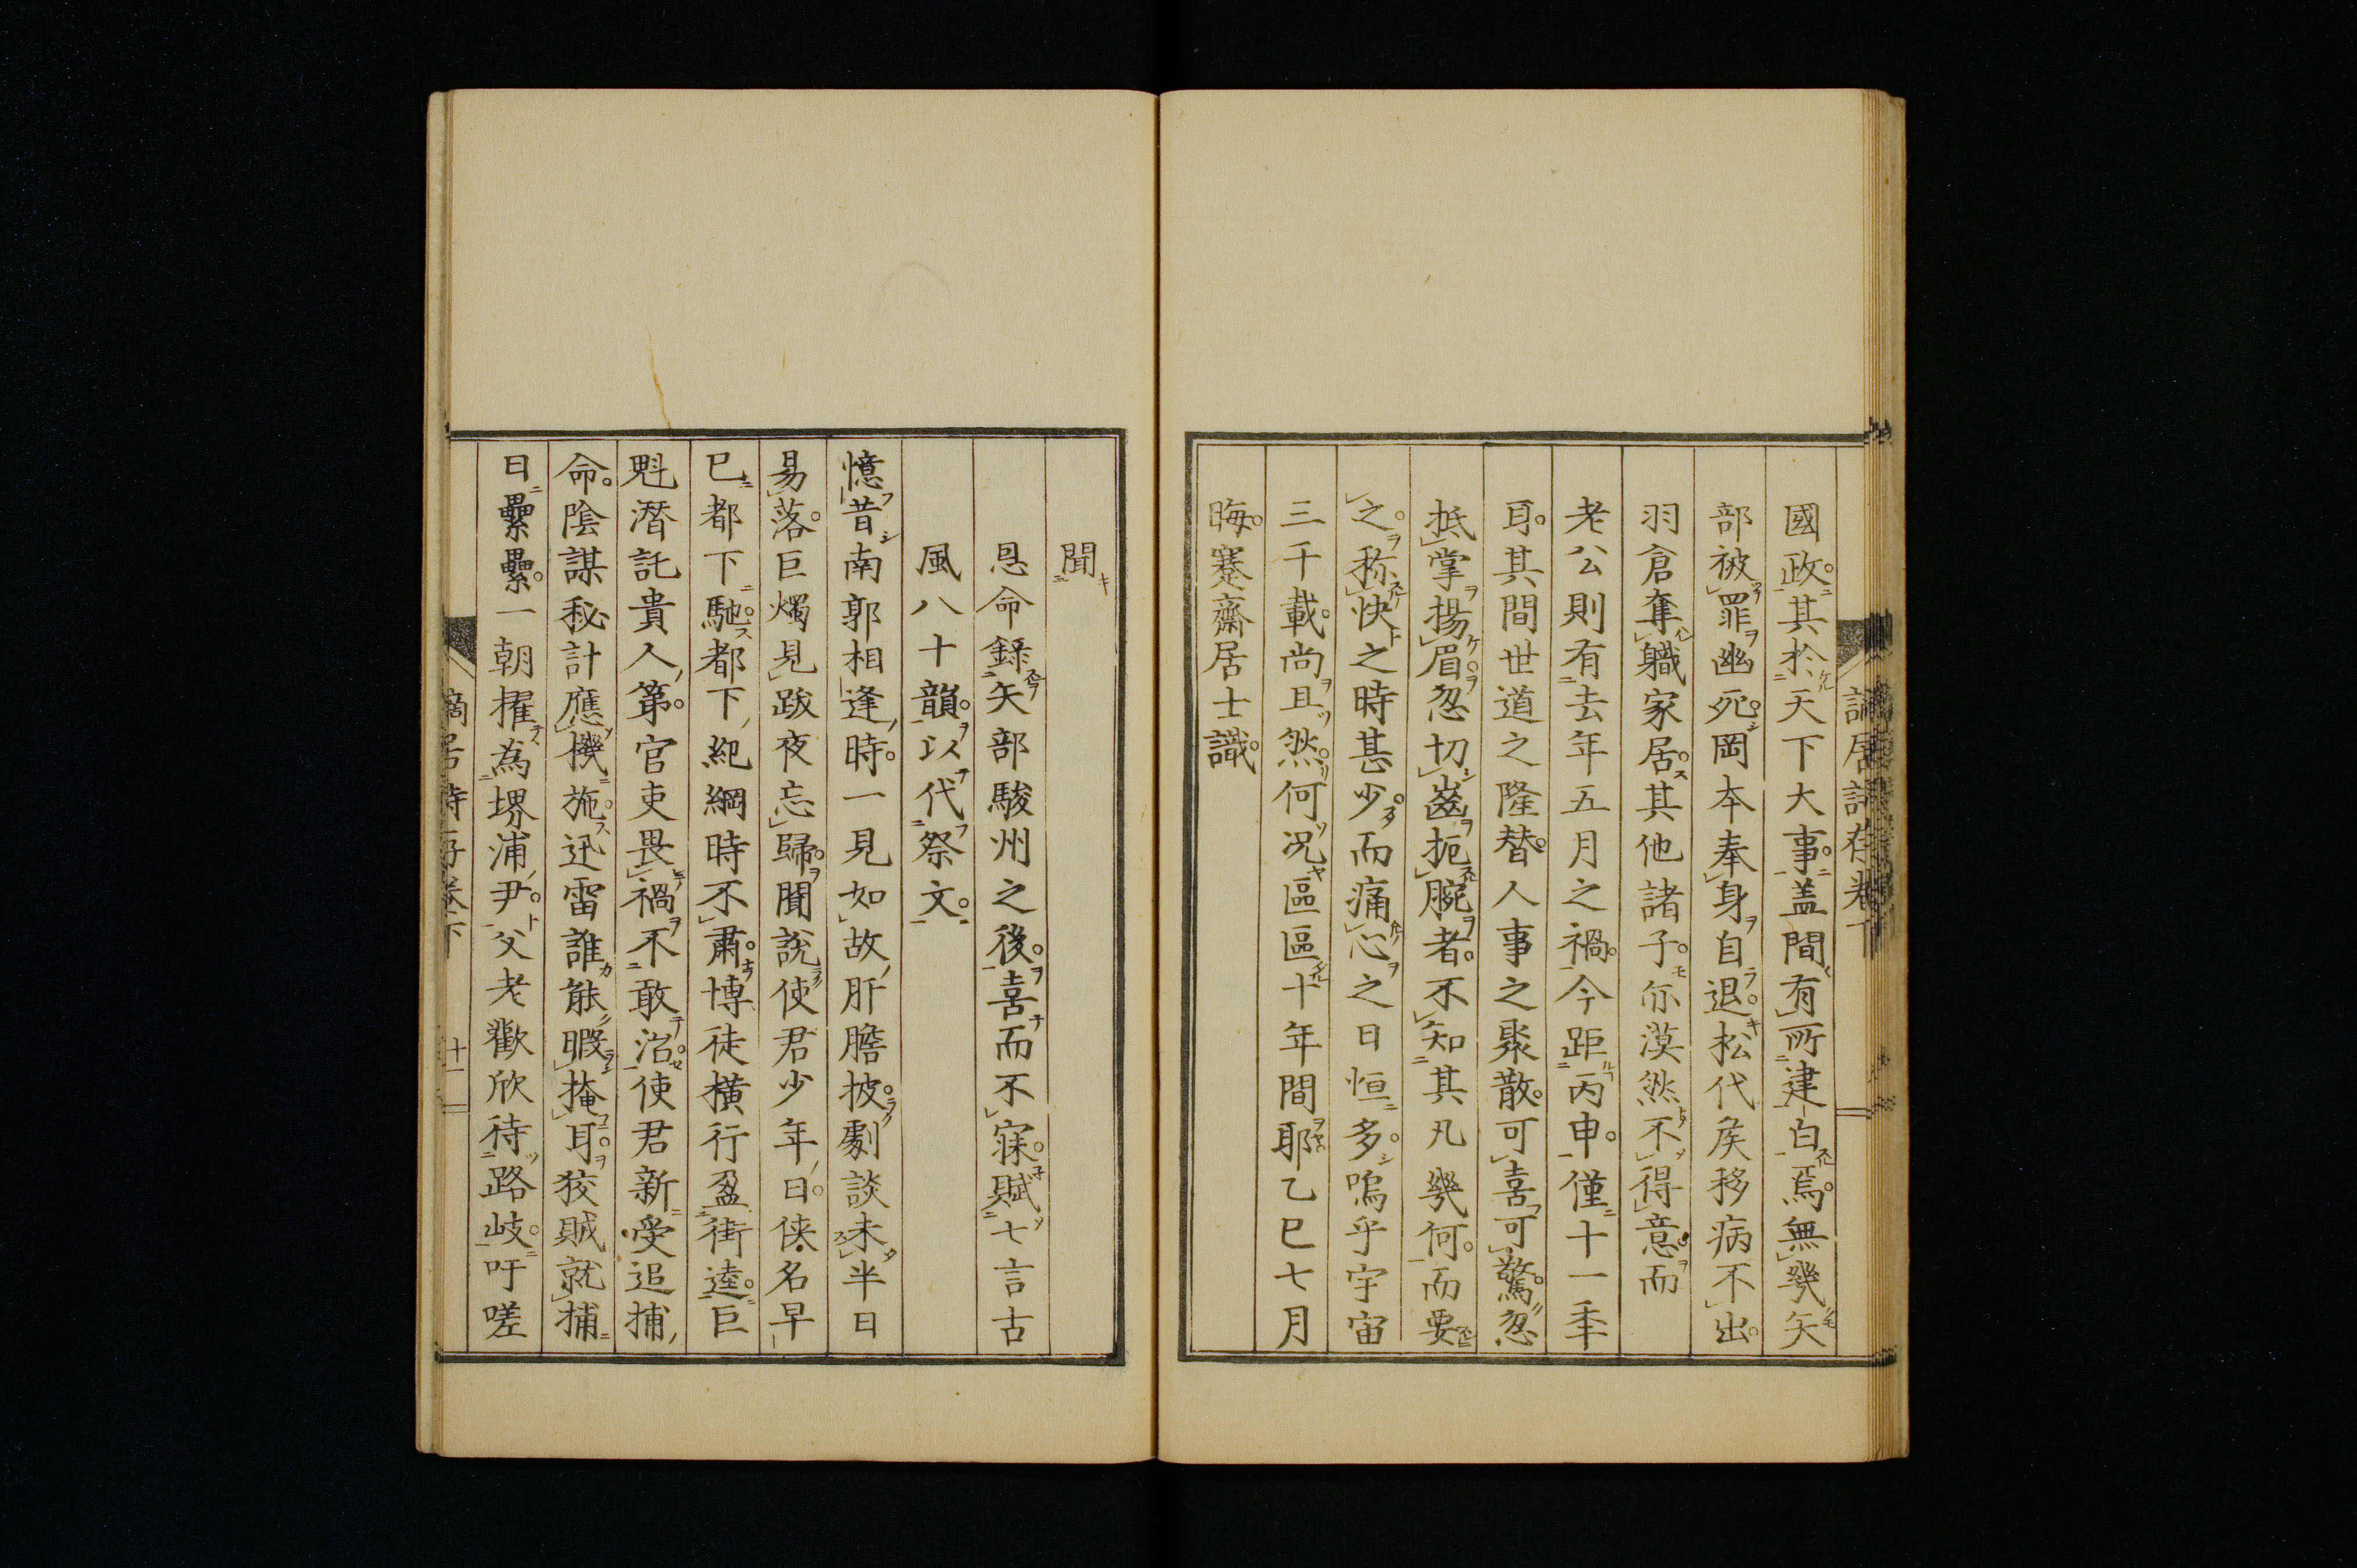 國政其於天下大事盖間有所建白焉無幾矢
部被罪幽死岡本奉身自退松代矦移病不出
羽倉奪職家居其他諸子亦漠然不得意而
老公則有去年五月之禍今距丙申僅十一秊
耳其間世道之隆替人事之聚散可喜可驚忽
抵掌揚眉忽切齒扼腕者不知其凡幾何而要
之称快之時甚少而痛心之日恒多嗚乎宇宙
三千載尚且然何况區區十年間耶乙巳七月
晦蹇齋居士識
聞
恩命錄矢部駿州之後喜而不寐賦七言古
風八十韻以代祭文
憶昔南郭相逢時一見如故肝膽披劇談未半日
易落巨燭見跋夜忘歸聞說使君少年日俠名早
已都下馳都下紀綱時不肅博徒橫行盈街逵巨
魁潛託貴人第官吏畏禍不敢治使君新受追捕
命陰謀秘計應機施迅雷誰能暇掩耳狡賊就捕
日纍纍一朝擢為堺浦尹父老歡欣待路岐吁嗟
謫居詩存卷下
十一